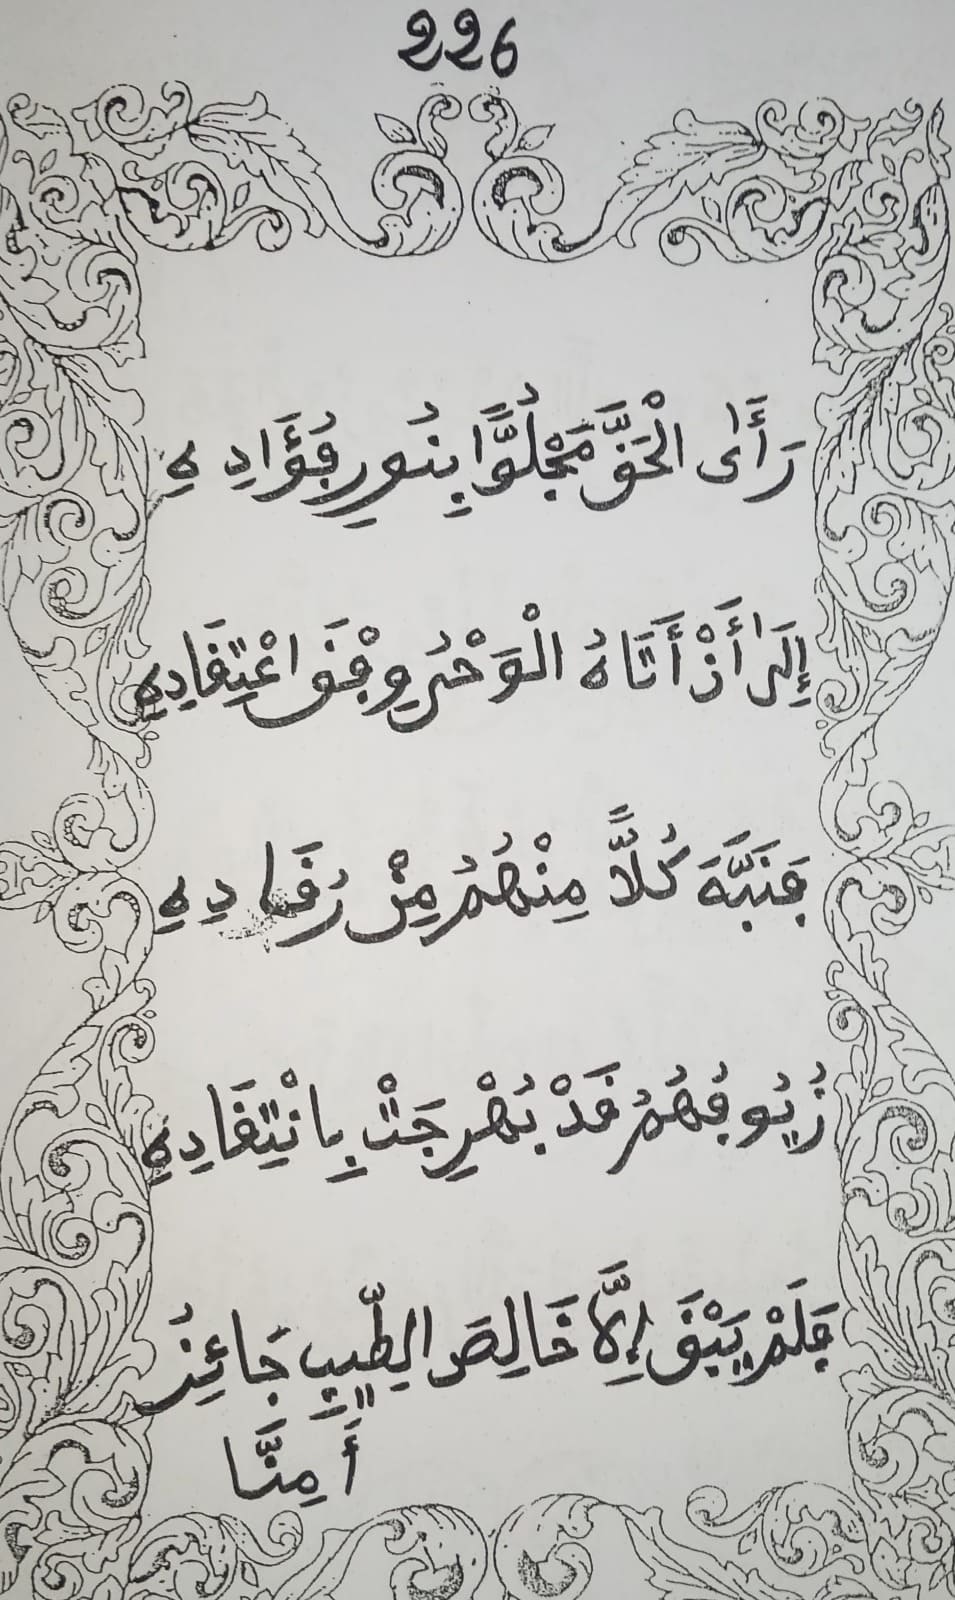 226
رَأَى الْحَقَّ مَجْلُوًّا بِنُورِ فُؤَادِهِ
إِلَى أَنْ أَتَاهُ الْوَحْيُ وِفْقَ اعْتِقَادِهِ
فَنَبَّهَ كُلًّا مِنْهُمُ مِنْ رُقَادِهِ
زُيُوفُهُمُ قَدْ بُهْرِجَتْ بِانْتِقَادِهِ
فَلَمْ يَبْقَ إِلَّا خَالِصَ الطِّيبِ جَائِزُ
أَمِنَّا